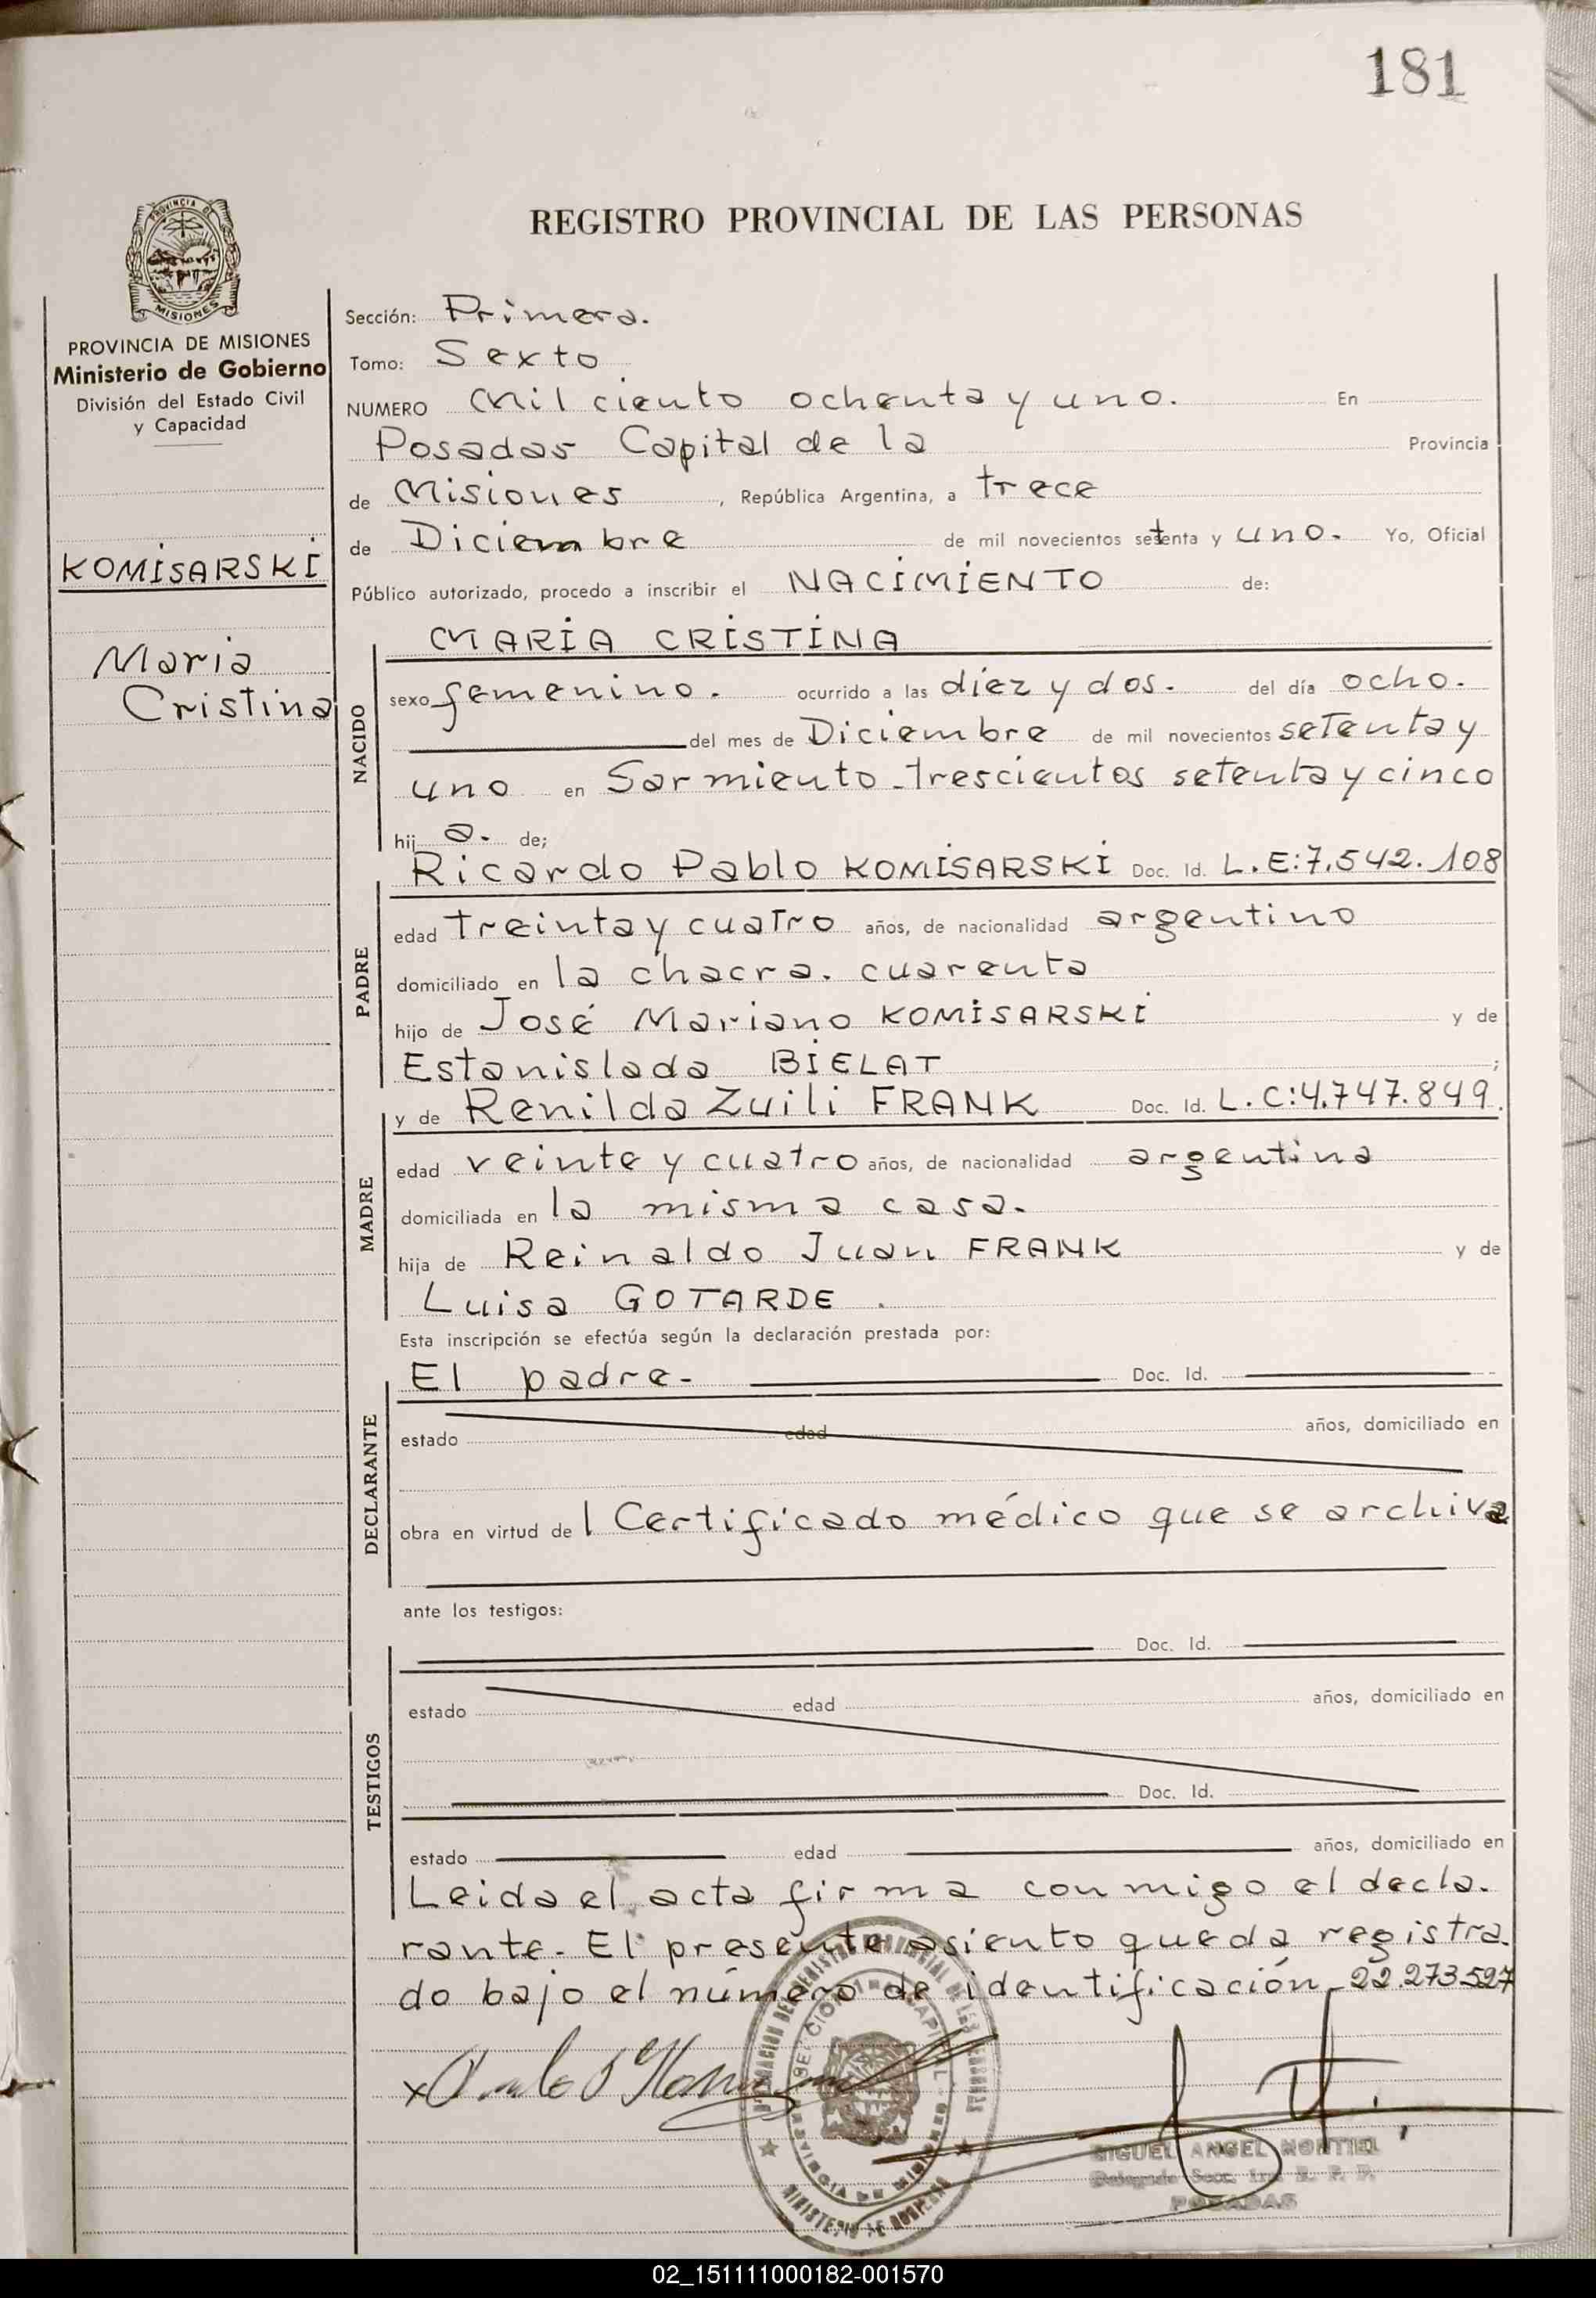 181
REGISTRO PROVINCIAL DE LAS PERSONAS
PROVINCIA DE
MISIONES
PROVINCIA DE MISIONES
Ministerio de Gobierno
División del Estado Civil
y Capacidad
KOMISARSKI
Maria
Cristina
Sección: Primera.
Tomo: Sexto
NUMERO Mil ciento ochenta y uno. En
Posadas Capital de la Provincia
de Misiones, República Argentina, a trece
de Diciembre de mil novecientos setenta y uno. Yo, Oficial
Público autorizado, procedo a inscribir el NACIMIENTO de:
NACIDO
MARIA CRISTINA
sexo femenino. ocurrido a las diez y dos. del día ocho.
del mes de Diciembre de mil novecientos setenta y
uno en Sarmiento trescientos setenta y cinco
hij a. de;
PADRE
Ricardo Pablo KOMISARSKI Doc. Id. L.E:7.542.108
edad treinta y cuatro años, de nacionalidad argentino
domiciliado en la chacra. cuarenta
hijo de José Mariano KOMISARSKI y de
Estanislada BIELAT ;
MADRE
y de Renilda Zuili FRANK Doc. Id. L.C:4.747.849.
edad veinte y cuatro años, de nacionalidad argentina
domiciliada en la misma casa.
hija de Reinaldo Juan FRANK y de
Luisa GOTARDE.
Esta inscripción se efectúa según la declaración prestada por:
DECLARANTE
El padre- Doc. Id.
estado edad años, domiciliado en
obra en virtud de l Certificado médico que se archiva
ante los testigos:
TESTIGOS
Doc. Id.
estado edad años, domiciliado en
Doc. Id.
estado edad años, domiciliado en
Leida el acta firma conmigo el decla.
rante. El presente asiento queda registra.
do bajo el número de identificación 22.273.527
MIGUEL ANGEL MONTIEL
POSADAS
02_151111000182-001570